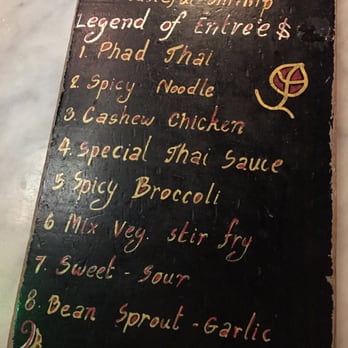 Legend of Entreé $
1. Phad Thai
2. Spicy Noodle
3. Cashew Chicken
4. Special Thai Sauce
5. Spicy Broccoli
6. Mix Veg. stir fry
7. Sweet - Sour
8. Bean Sprout - Garlic